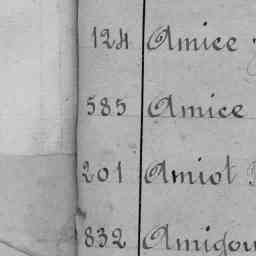 124 Amice
585 Amice
201 Amiot
832 Amigou